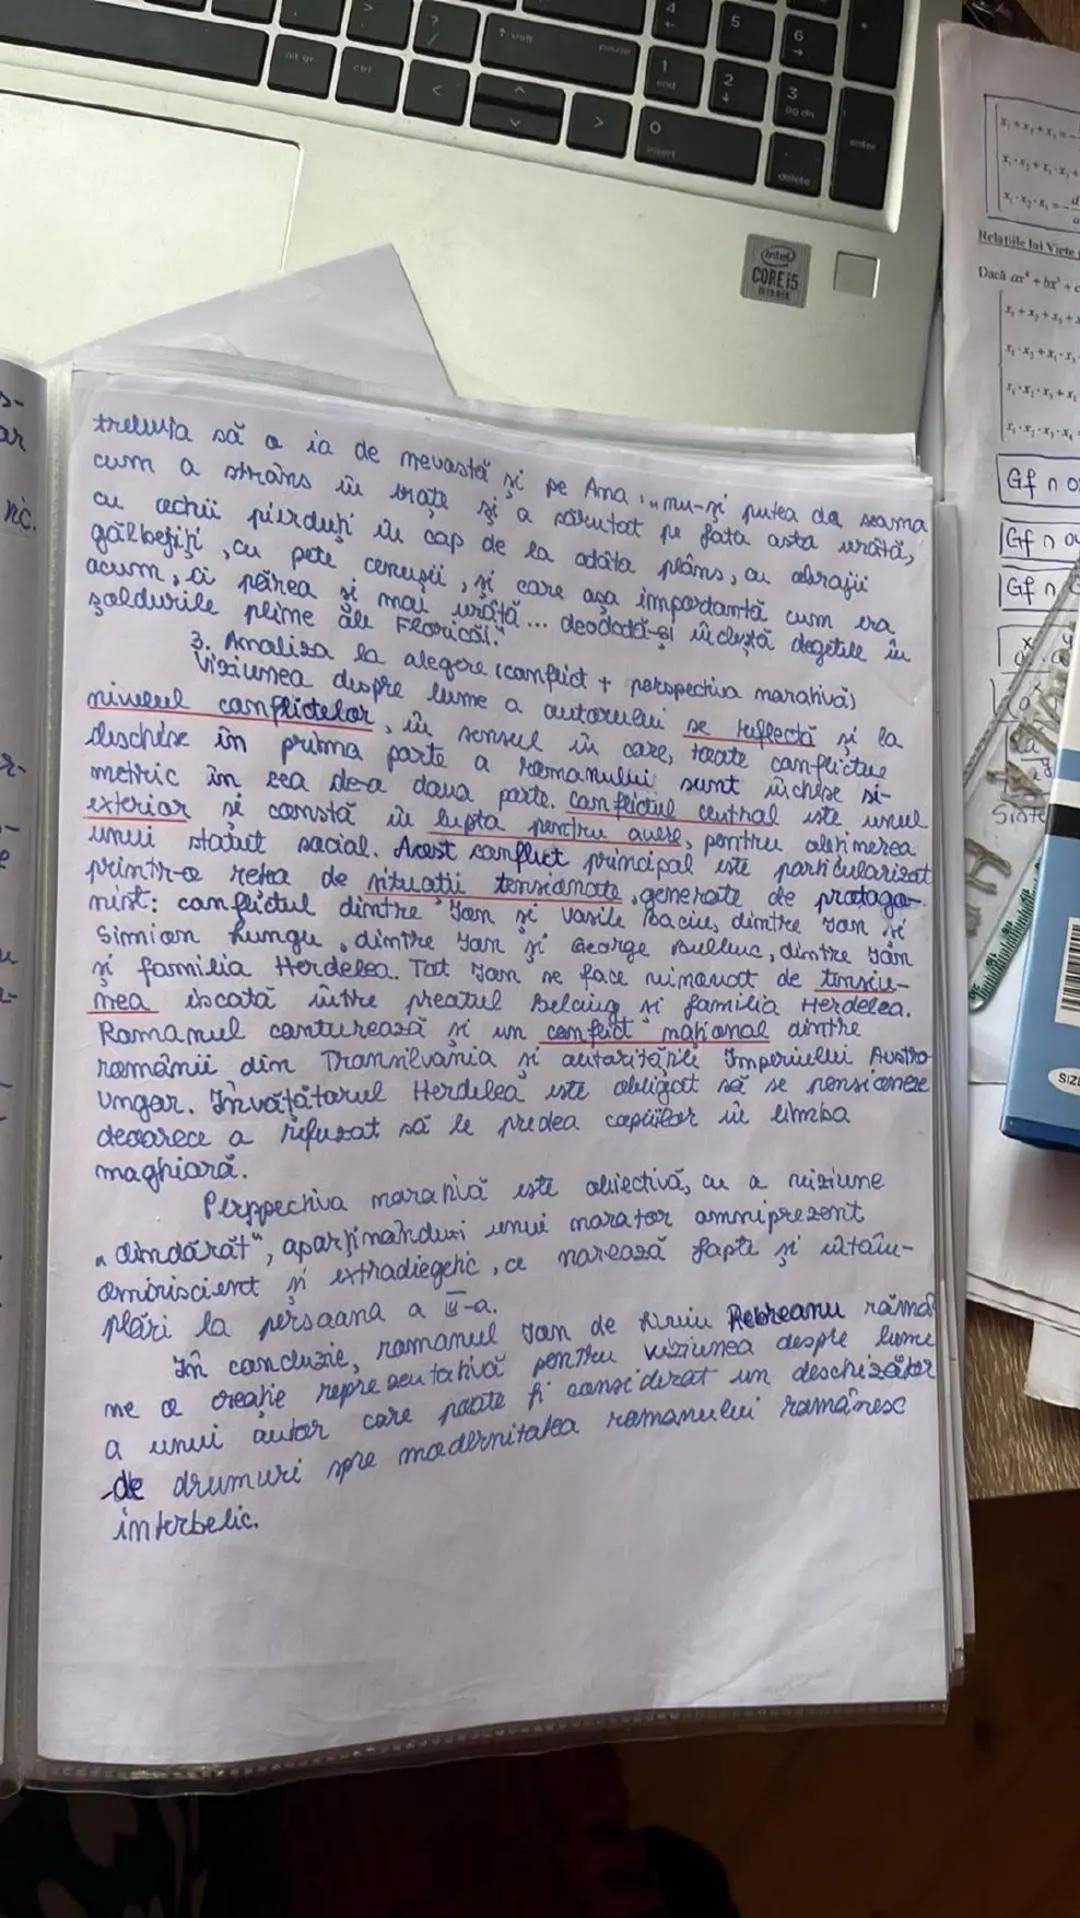 trebuia să o ia de nevastă și pe Ana: „nu-și putea da seama
cum a strâns în brațe și a sărutat pe fata asta urâtă,
cu ochii pierduți în cap de la atâta plâns, cu obrajii
gălbejiți, cu pete cenușii, și care așa importantă cum era
acum, îi părea și mai urâtă... deodată-și încleștă degetele în
șoldurile pline ale Floricăi."
3. Analiza la alegere (conflict + perspectiva narativă)
Viziunea despre lume a autorului se reflectă și la
nivelul conflictelor, în sensul în care, toate conflictele
deschise în prima parte a romanului sunt închise si-
metric în cea de-a doua parte. Conflictul central este unul
exterior și constă în lupta pentru avere, pentru obținerea
unui statut social. Acest conflict principal este particularizat
printr-o rețea de situații tensionate, generate de protago-
nist: conflictul dintre Ion și Vasile Baciu, dintre Ion și
Simion Lungu, dintre Ion și George Bulbuc, dintre Ion
și familia Herdelea. Tot Ion se face vinovat de tensiu-
nea iscată între preotul Belciug și familia Herdelea.
Romanul conturează și un conflict național dintre
românii din Transilvania și autoritățile Imperiului Austro
Ungar. Învățătorul Herdelea este obligat să se pensioneze
deoarece a refuzat să le predea copiilor în limba
maghiară.
Perppectiva narativă este obiectivă, cu o viziune
„dindărăt", aparținându-i unui narator omniprezent
omniscient și extradiegetic, ce narează fapte și întâm-
plări la persoana a III-a.
În concluzie, romanul Ion de Liviu Rebreanu rămâ
ne o creație reprezentativă pentru viziunea despre lume
a unui autor care poate fi considerat un deschizător
de drumuri spre modernitatea romanului românesc
interbelic.
Relațiile lui Viete
Dacă
intel
CORE i5
alt gr
ctrl
enter
delete
insert
end
pg dn